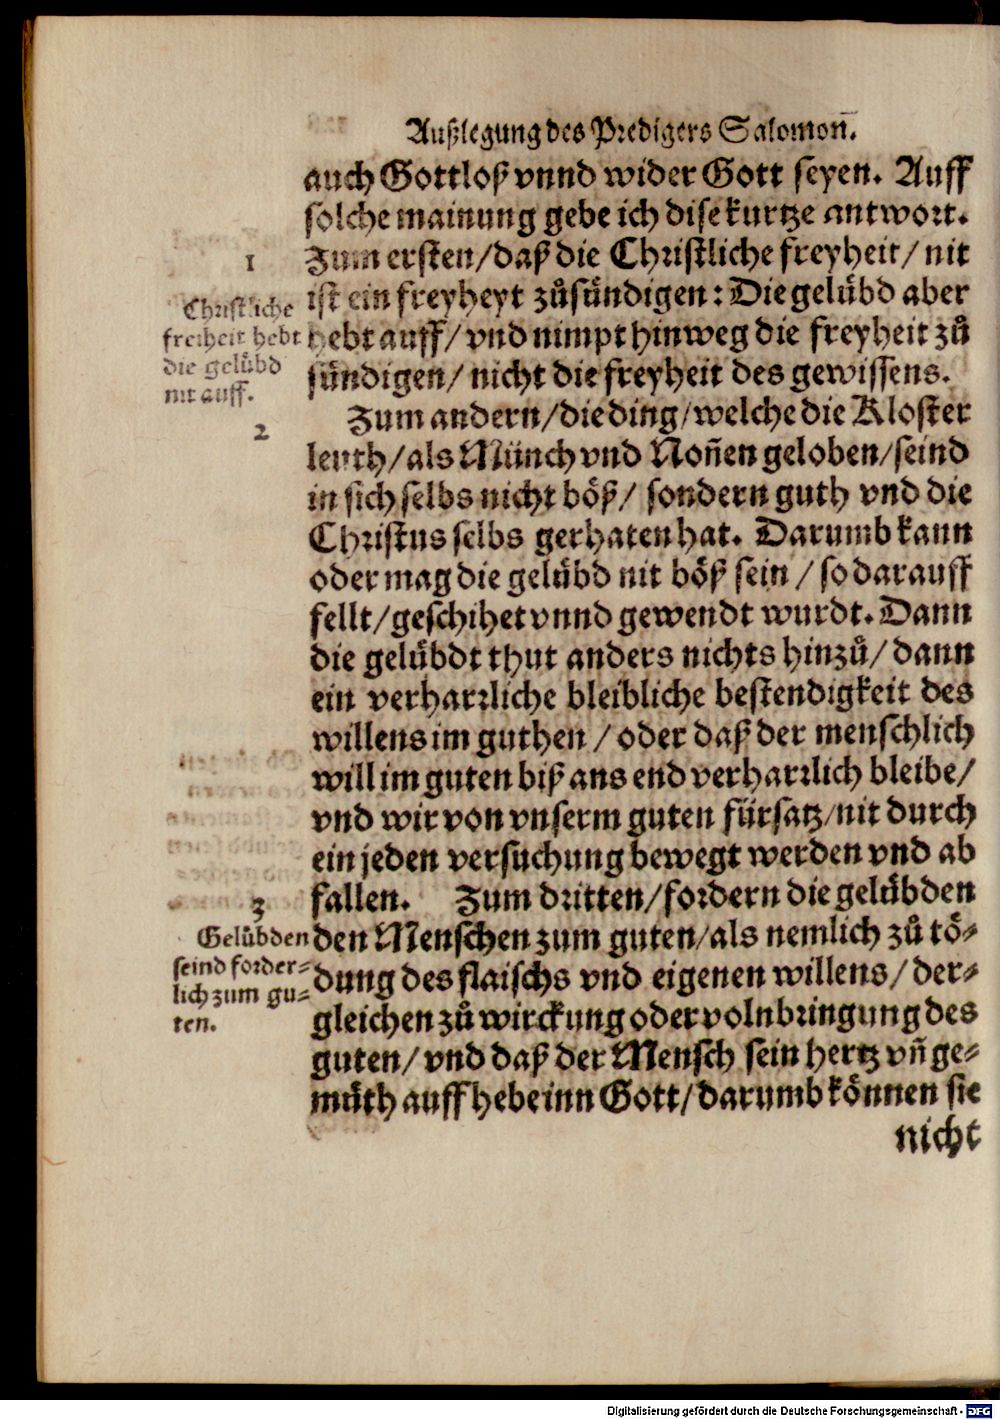 Außlegung des Predigers Salomon̄.
auch Gottloß vnnd wider Gott seyen. Auff
solche mainung gebe ich dise kurtze antwort.
1
Zum ersten/daß die Christliche freyheit/ nit
ist ein freyheyt zůsündigen: Die gelübd aber
hebt auff/ vnd nimpt hinweg die freyheit zů
sündigen/ nicht die freyheit des gewissens.
Christliche
freiheit hebt
die gelübd
nit auff.
2
Zum andern/die ding/welche die Kloster
leuth/als Münch vnd Non̄en geloben/seind
in sich selbs nicht böß/ sondern guth vnd die
Christus selbs gerhaten hat. Darumb kann
oder mag die gelübd nit böß sein / so darauff
fellt/geschihet vnnd gewendt wurdt. Dann
die gelübdt thut anders nichts hinzů/ dann
ein verharꝛliche bleibliche bestendigkeit des
willens im guthen / oder daß der menschlich
will im guten biß ans end verharꝛlich bleibe/
vnd wir von vnserm guten fürsatz/nit durch
ein jeden versuchung bewegt werden vnd ab
fallen. Zum dritten/fordern die gelübden
3
Gelübden
seind forder⸗
lich zum gu⸗
ten.
den Menschen zum guten/als nemlich zů tö⸗
dung des flaischs vnd eigenen willens/ der⸗
gleichen zů wirckung oder volnbringung des
guten/ vnd daß der Mensch sein hertz vn̄ ge⸗
müth auffhebe inn Gott/darumb können sie
nicht
Digitalisierung gefördert durch die Deutsche Forschungsgemeinschaft - DFG